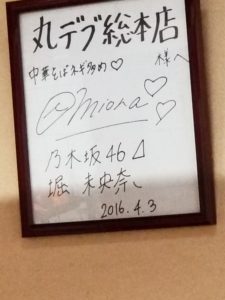 丸デブ総本店
様へ
中華そばネギ多め♡
miona♡♡
乃木坂46⊿
堀 未央奈
2016.4.3